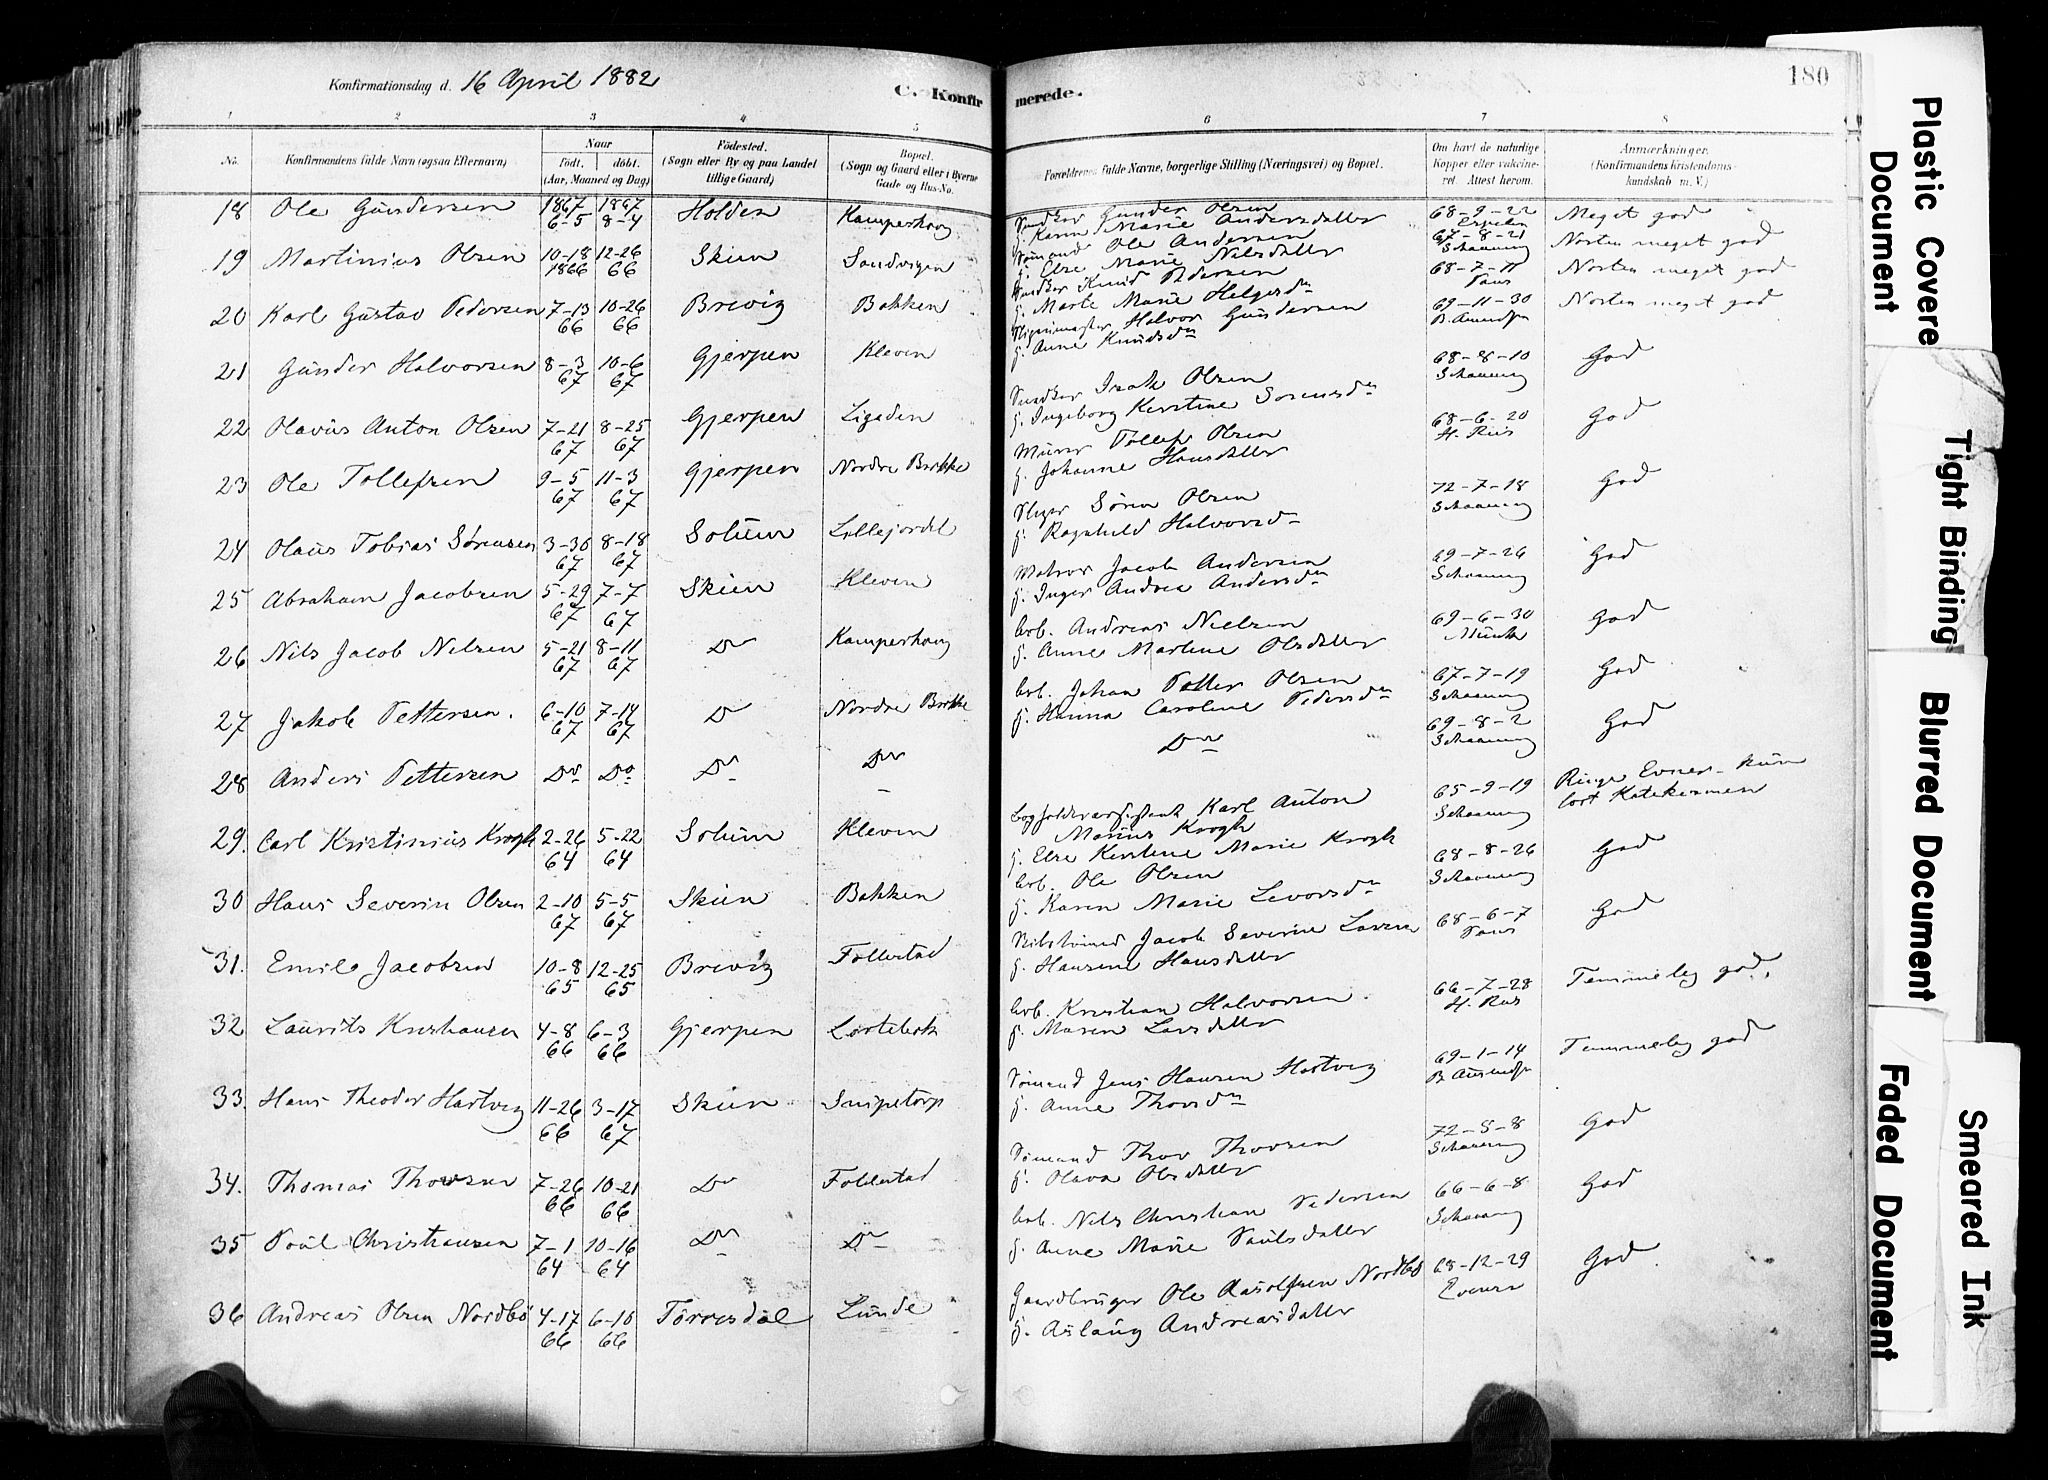 Konfirmationsdag d. 16 April 1882
C. Konfirmerede.
180
1 2 3 4 5 6 7 8
No.
Konfirmandens fulde Navn (ogsaa Efternavn)
Naar
födt. döbt.
(Aar, Maaned og Dag)
Födested.
(Sogn eller By og paa Landet
tillige Gaard)
Bopæl.
(Sogn og Gaard eller i Byerne
Gade og Hus-No.
Forældrenes fulde Navne, borgerlige Stilling (Næringsvei) og Bopæl.
Om havt de naturlige
Kopper eller vaccineret.
Attest herom.
Anmærkninger.
(Konfirmandens Kristendomskundskab
m. V.)
18 Ole Gundersen 1867 6-5 1867 8-4 Holden Kamperhoug Gunder Olsen
g. Karen Marie Andersdatter 68-9-22 Meget god
19 Martinius Olsen 10-18 1866 12-26 66 Skien Sandvigen Sömand Ole Andersen
g. Else Marie Nilsdatter 67-8-21 Schanning Norsten meget god
20 Karl Gustav Pedersen 7-13 66 10-26 66 Brevig Bakken Knud Pedersen
g. Marte Marie Helgesdr 68-7-11 Norsten meget god
21 Gunder Halvorsen 8-3 67 10-6 67 Gjerpen Kleven Halvor Gundersen
g. Anne Knudsdr 69-11-30 B. Amundsen Norsten meget god
22 Olavus Anton Olsen 7-21 67 8-25 67 Gjerpen Ligaden Snedker Isak Olsen
g. Ingeborg Kerstine Sorensdr 68-8-10 Schanning God
23 Ole Tollefsen 9-5 67 11-3 67 Gjerpen Nordre Brekke Murer Tollef Olsen
g. Johanne Hansdatter 68-6-20 H. Riis God
24 Olaus Tobias Sörensen 3-30 67 8-18 67 Solum Lillejordet Sören Olsen
g. Ragnhild Halvorsd 72-7-18 Schanning God
25 Abraham Jacobsen 5-29 67 7-7 67 Skien Kleven Matros Jacob Andersen
g. Inger Andrea Andersdr 69-7-26 Schanning God
26 Nils Jacob Nelsen 5-21 67 8-11 67 Do Kamperhoug Arb. Andreas Nielsen
g. Anne Martene Olsdatter 69-6-30 Munk God
27 Jakob Pettersen. 6-10 67 7-14 67 Do Nordre Brekke Arb. Johan Petter Olsen
g. Hanna Caroline Pedersdr 67-7-19 Schanning God
28 Anders Pettersen Do Do Do Do Do 69-8-2 Schanning God
29. Carl Kristinius Krogh 2-26 64 5-22 64 Solum Kleven Karl Anton
Marius Krogh
g. Else Kerstene Marie Krogh 65-9-19 Schanning Ringe Evner - kun
lært Katekismen
30 Hans Severin Olsen 2-10 67 5-5 67 Skien Bakken Arb. Ole Olsen
g. Karen Marie Levorsdr 68-8-26 Schanning God
31. Emil Jacobsen 10-8 65 12-25 65 Brevig Follestad Jacob Severin Larsen
g. Hansene Hansdatter 68-6-7 God
32 Laurits Kristiansen 4-8 66 6-3 66 Gjerpen Lortebek Arb. Kristian Halvorsen
g. Maren Larsdatter 66-7-28 H. Riis Temmelig god.
33. Hans Theodor Hartvig 11-26 66 3-17 67 Skien Snipetorp Sömand Jens Hansen Hartvig
g. Anne Thorsdr 69-1-14 B. Amundsen Temmelig god
34. Thomas Thorsen 7-26 66 10-21 66 Do Follestad Sömand Thor Thorsen
g. Olava Olsdatter 72-5-8 Schanning God
35 Poul Christiansen 7-1 64 10-16 64 Do Do Arb. Nils Christian Pedersen
g. Anne Marie Poulsdatter 66-6-8 Schanning God
36 Andreas Olsen Nordbö 4-17 66 6-10 66 Törresdal Lunde Gaardbruger Ole Aasolfsen Nordbö
g. Aslaug Andreasdatter 68-12-29 God.
Plastic Covere
Document
Tight Binding
Blurred Document
Faded Document
Smeared Ink